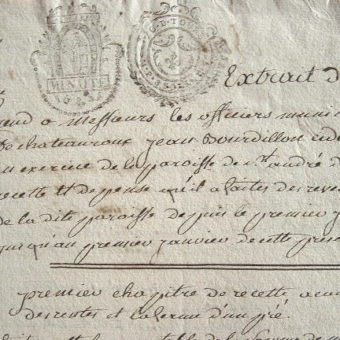 Extrait d
a Messieurs les officiers muni
de chateauroux jean Bourdillon
en exercice de la paroisse de St. andré d
recette et depense qu'il a faites des reve
de la dite paroisse depuis le premier j
jusqu'au premier janvier de cette prese
premier chapitre de recette
des rentes et la ferme d'un pré.